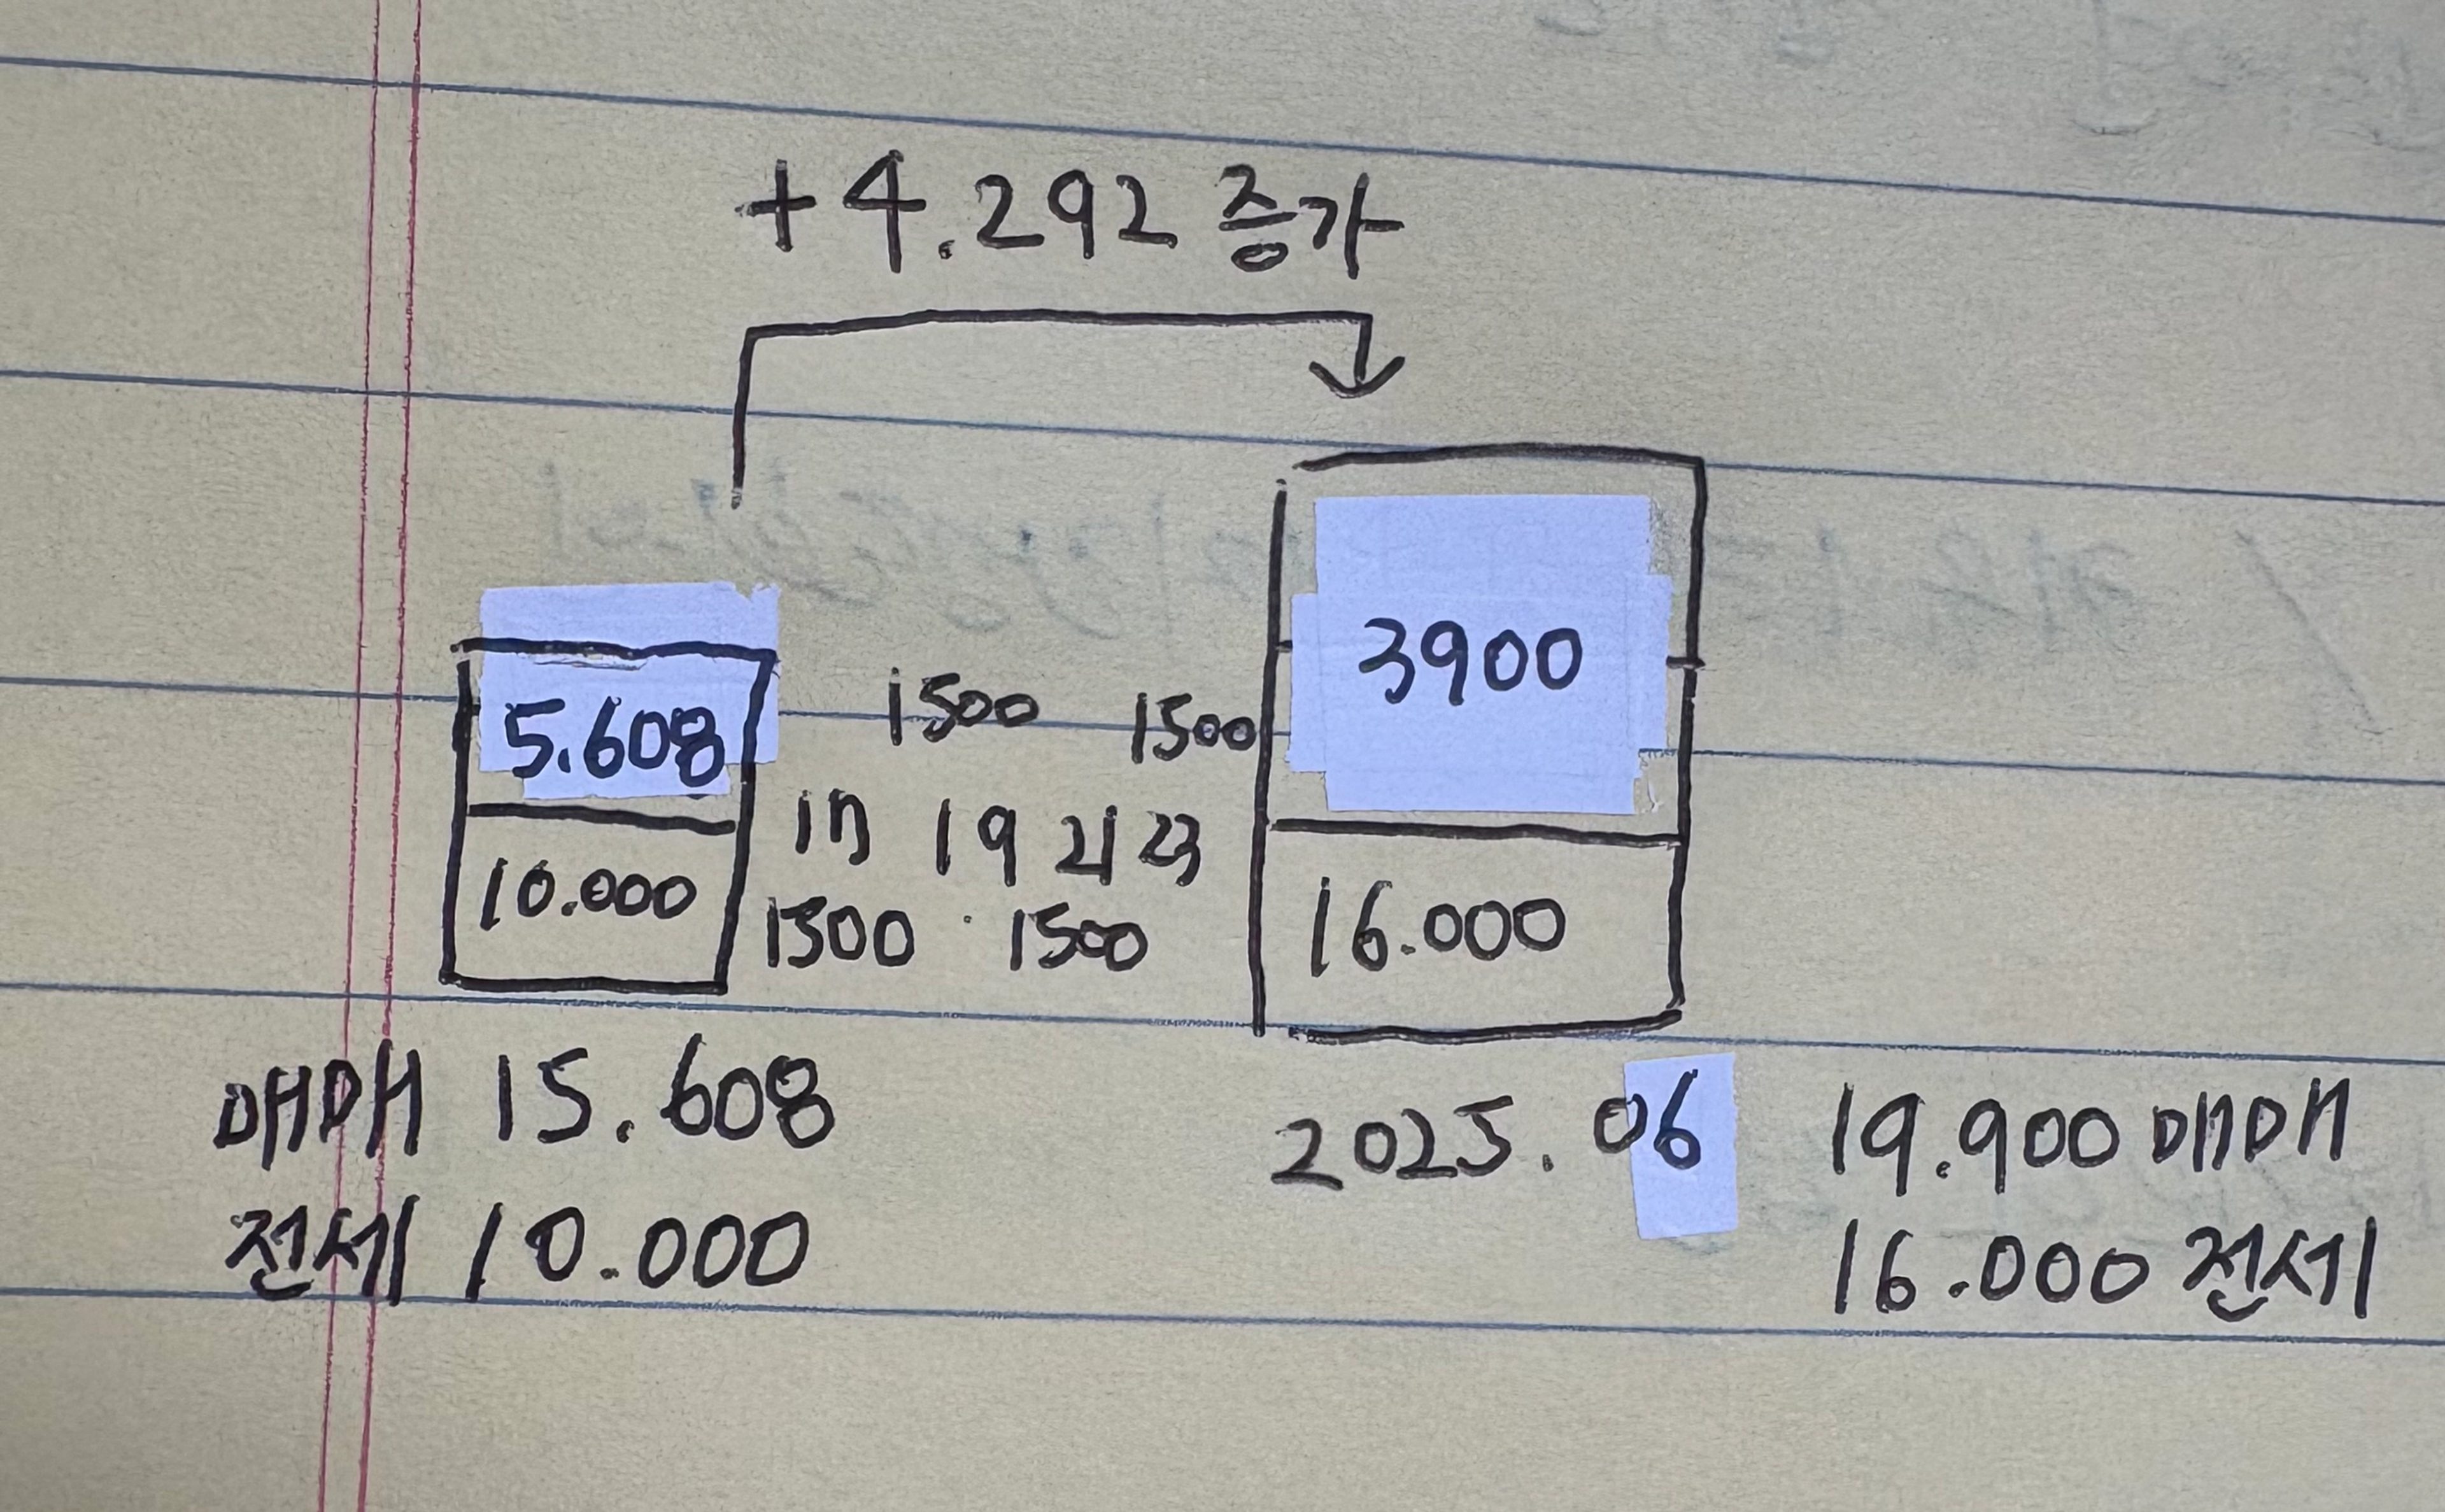 +4.292 증가
3900
5.608
1500 1500
10.000
1500 1500
16.000
매매 15.608
2025.06 19.900 매매
전세 10.000
16.000 전세